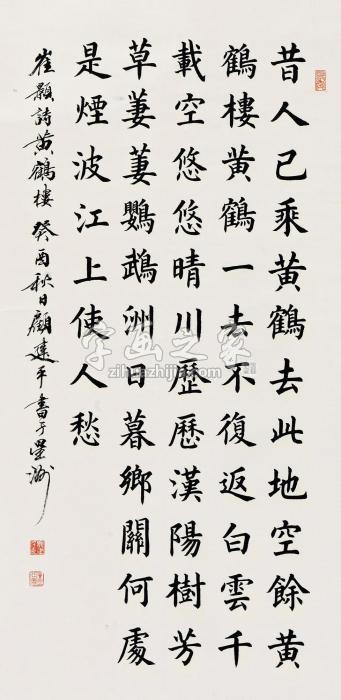 昔人已乘黄鶴去此地空餘黄
鶴樓黄鶴一去不復返白雲千
載空悠悠晴川歷歷漢陽樹芳
草萋萋鸚鵡洲日暮鄉關何處
是煙波江上使人愁
崔顥詩黄鶴樓 癸酉秋日顧建平書于星洲
字画之家
zihuazhijia.com